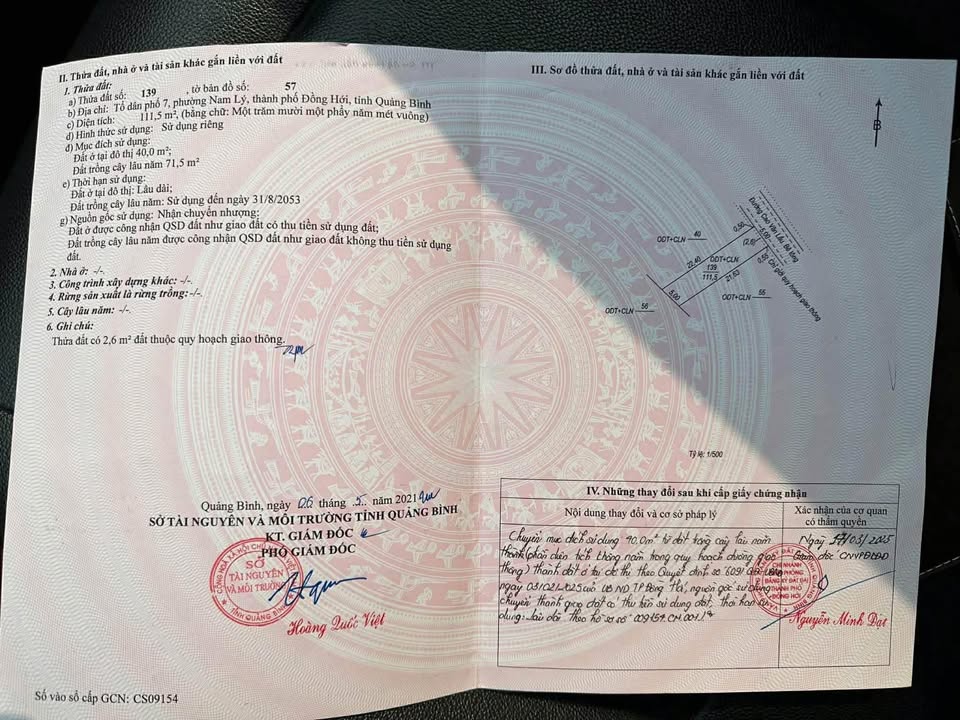 II. Thửa đất, nhà ở và tài sản khác gắn liền với đất
1. Thửa đất:
a) Thửa đất số: 139 , tờ bản đồ số: 57
b) Địa chỉ: Tổ dân phố 7, phường Nam Lý, thành phố Đồng Hới, tỉnh Quảng Bình
c) Diện tích: 111,5 m², (bằng chữ: Một trăm mười một phẩy năm mét vuông)
d) Hình thức sử dụng: Sử dụng riêng
đ) Mục đích sử dụng:
Đất ở tại đô thị 40,0 m²;
Đất trồng cây lâu năm 71,5 m²
e) Thời hạn sử dụng:
Đất ở tại đô thị: Lâu dài;
Đất trồng cây lâu năm: Sử dụng đến ngày 31/8/2053
g) Nguồn gốc sử dụng: Nhận chuyển nhượng;
Đất ở được công nhận QSD đất như giao đất có thu tiền sử dụng đất;
Đất trồng cây lâu năm được công nhận QSD đất như giao đất không thu tiền sử dụng
đất.
2. Nhà ở: -/-.
3. Công trình xây dựng khác: -/-.
4. Rừng sản xuất là rừng trồng: -/-.
5. Cây lâu năm: -/-.
6. Ghi chú:
Thửa đất có 2,6 m² đất thuộc quy hoạch giao thông.
Quảng Bình, ngày 06 tháng .5. năm 2021
SỞ TÀI NGUYÊN VÀ MÔI TRƯỜNG TỈNH QUẢNG BÌNH
KT. GIÁM ĐỐC
PHÓ GIÁM ĐỐC
SỞ
TÀI NGUYÊN
VÀ MÔI TRƯỜNG
TỈNH QUẢNG BÌNH
Hoàng Quốc Việt
Số vào sổ cấp GCN: CS09154
III. Sơ đồ thửa đất, nhà ở và tài sản khác gắn liền với đất
B
Đường Cao Văn Lầu Bê tông
0,50
5,00
(2,6)
0,50
Chỉ giới quy hoạch giao thông
ODT+CLN 40
22,60
ODT+CLN
139
111,5
21,63
ODT+CLN 55
5,00
ODT+CLN 56
Tỷ lệ: 1/500
IV. Những thay đổi sau khi cấp giấy chứng nhận
Nội dung thay đổi và cơ sở pháp lý
Xác nhận của cơ quan
có thẩm quyền
Chuyển mục đích sử dụng 40.0m² từ đất trồng cây lâu năm
thành (phần diện tích không nằm trong quy hoạch đường giao
thông) thành đất ở tại đô thị theo Quyết định số 609/QĐ-UBND
ngày 03/02/2025 của UBND TP Đồng Hới, nguồn gốc sử dụng
chuyển thành giao đất có thu tiền sử dụng đất, Thời hạn sử
dụng: lâu dài theo hồ sơ số 009154.CM.001
Ngày 17/03/2025
Giám đốc CNVPĐKĐĐ
CHI NHÁNH
VĂN PHÒNG
ĐĂNG KÝ ĐẤT ĐAI
THÀNH PHỐ
ĐỒNG HỚI
Nguyễn Minh Đạt